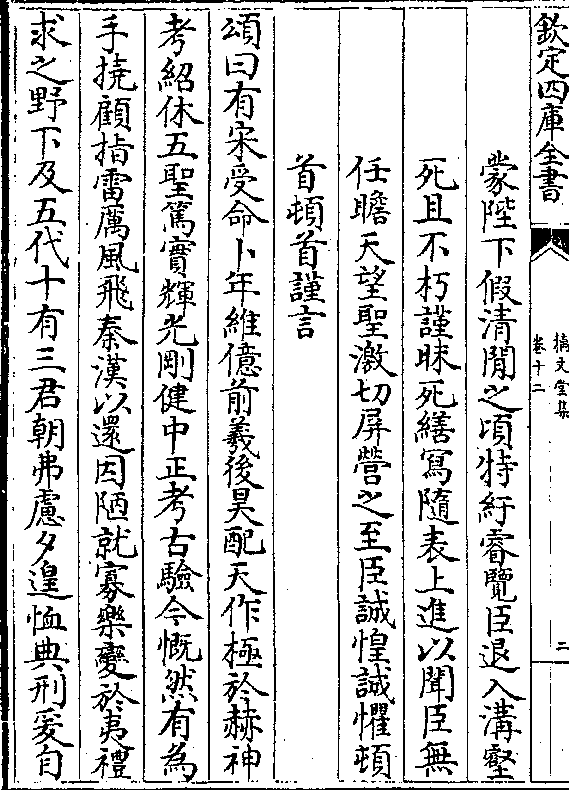 欽定四庫全書
摛文堂集
卷十二
二
蒙陛下假清閒之頃特紆睿覽臣退入溝壑
死且不朽謹昧死繕寫隨表上進以聞臣無
任瞻天望聖激切屏營之至臣誠惶誠懼頓
首頓首謹言
頌曰有宋受命卜年維億前羲後昊配天作極於赫神
考紹休五聖篤實輝光剛健中正考古驗今慨然有為
手撓顧指雷厲風飛秦漢以還因陋就寡樂變於夷禮
求之野下及五代十有三君朝弗慮夕遑恤典刑爰自